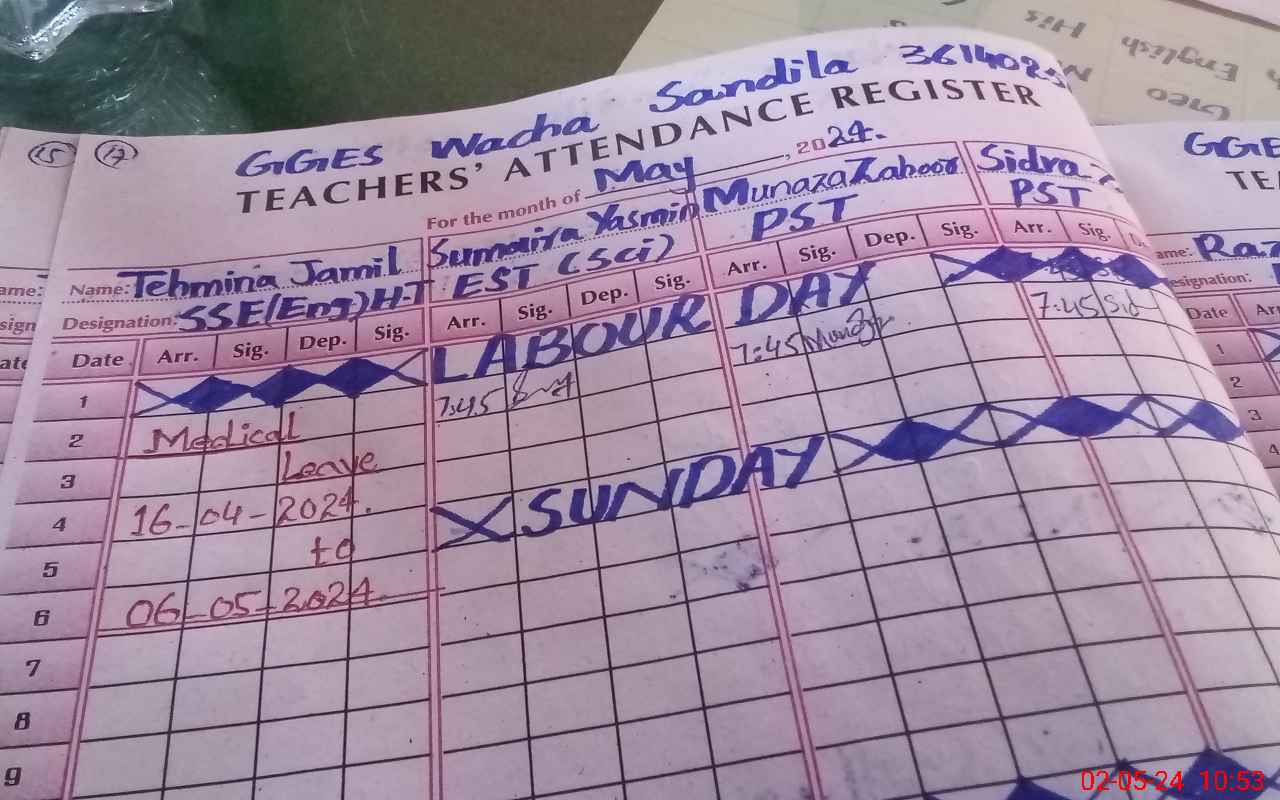 GGES Wacha Sandila 3614025
TEACHERS' ATTENDANCE REGISTER
For the month of May, 2024.
15 17
Name: Tehmina Jamil Sumaira Yasmin Munaza Zahoor Sidra
Designation: SSE(Eng)H-T EST (Sci) PST PST
Date Arr. Sig. Dep. Sig. Arr. Sig. Dep. Sig. Arr. Sig. Dep. Sig. Arr. Sig.
1 LABOUR DAY
2 Medical 7:45 7:45 7:45 Sid
3 Leave
4 16-04-2024.
5 to SUNDAY
6 06-05-2024.
7
8
9
GGE
TE
ame: Raz
Designation:
Date Arr
1
2
3
4
ame:
sign
ate
His
English
Geo
02-05-24 10:53